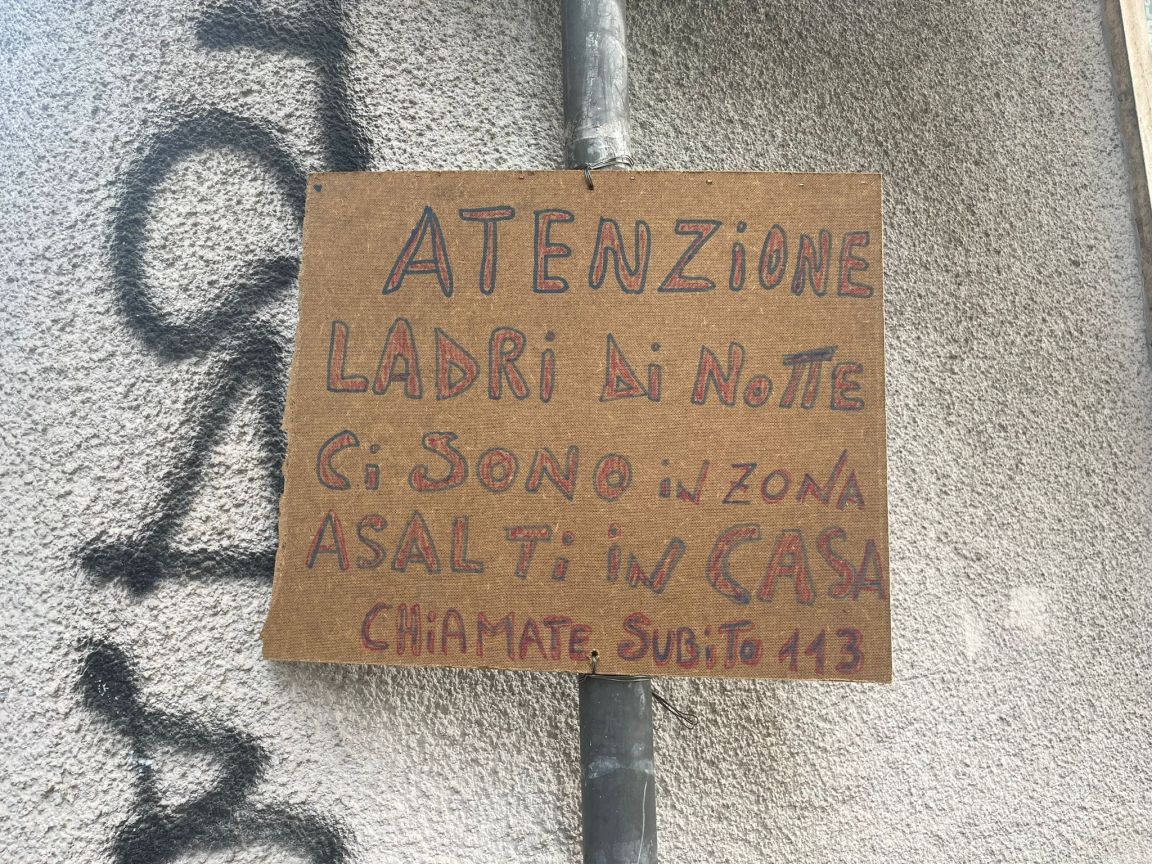 ATENZiONE
LADRi Di NoTTE
Ci SONO iN ZONA
ASALTi iN CASA
CHiAMATE SUBiTo 113